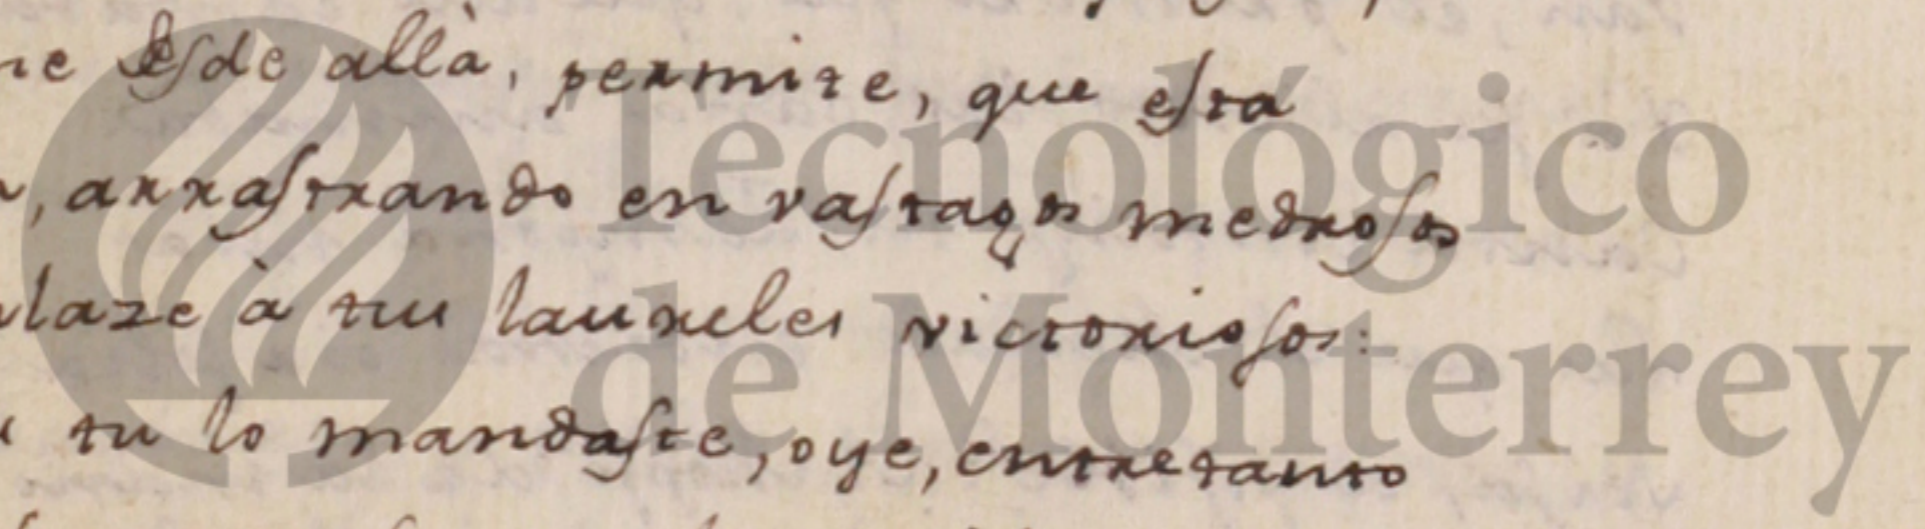 desde allà, permite, que esta
, arrastrando en vastagos medrosos
enlaze à tus laureles victoriosos:
tu lo mandaste, oye, entretanto
Tecnológico
de Monterrey